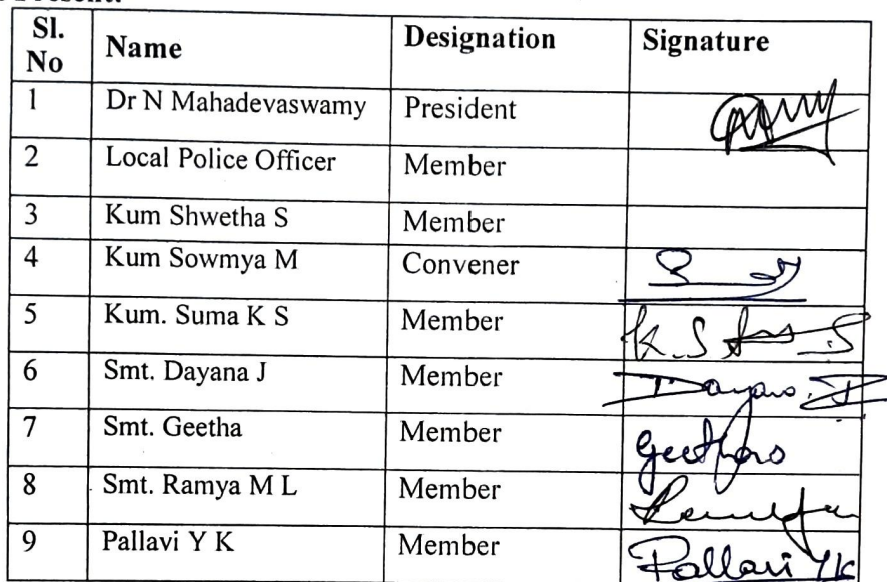 Present:
Sl. No Name Designation Signature
1 Dr N Mahadevaswamy President
2 Local Police Officer Member
3 Kum Shwetha S Member
4 Kum Sowmya M Convener
5 Kum. Suma K S Member K.S
6 Smt. Dayana J Member Dayana J
7 Smt. Geetha Member
8 Smt. Ramya M L Member
9 Pallavi Y K Member Pallavi YK